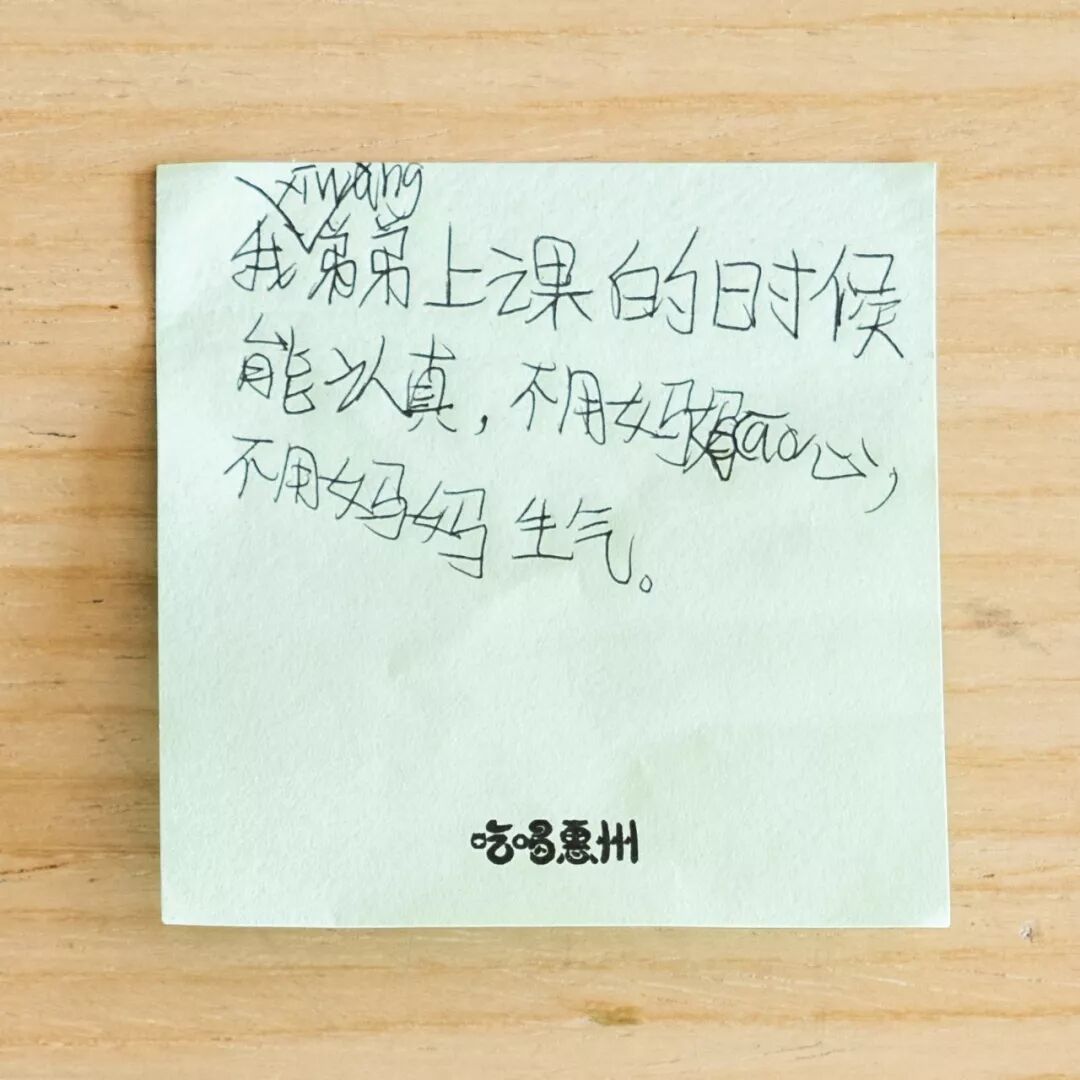 xīwàng
我弟弟上课的时候
能认真，不用妈妈cāo心，
不用妈妈生气。
吃喝惠州